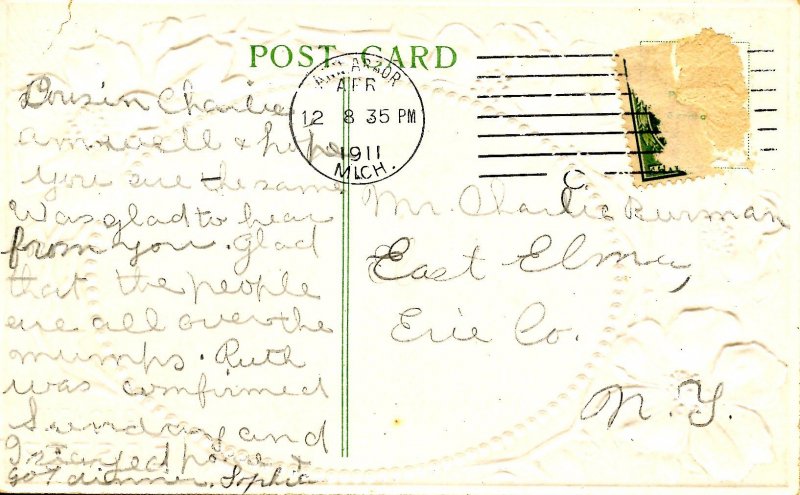 POST CARD
ANN ARBOR
APR
12 8 35 PM
1911
MICH.
C
Cousin Charlie
am well & hope
you are the same
Was glad to hear
from you. Glad
that the people
are all over the
mumps. Ruth
was comfirmed
Sunday and
I stayed home &
got dinner. Sophie
Mr. Charlie Burman
East Elma,
Erie Co.
N. Y.